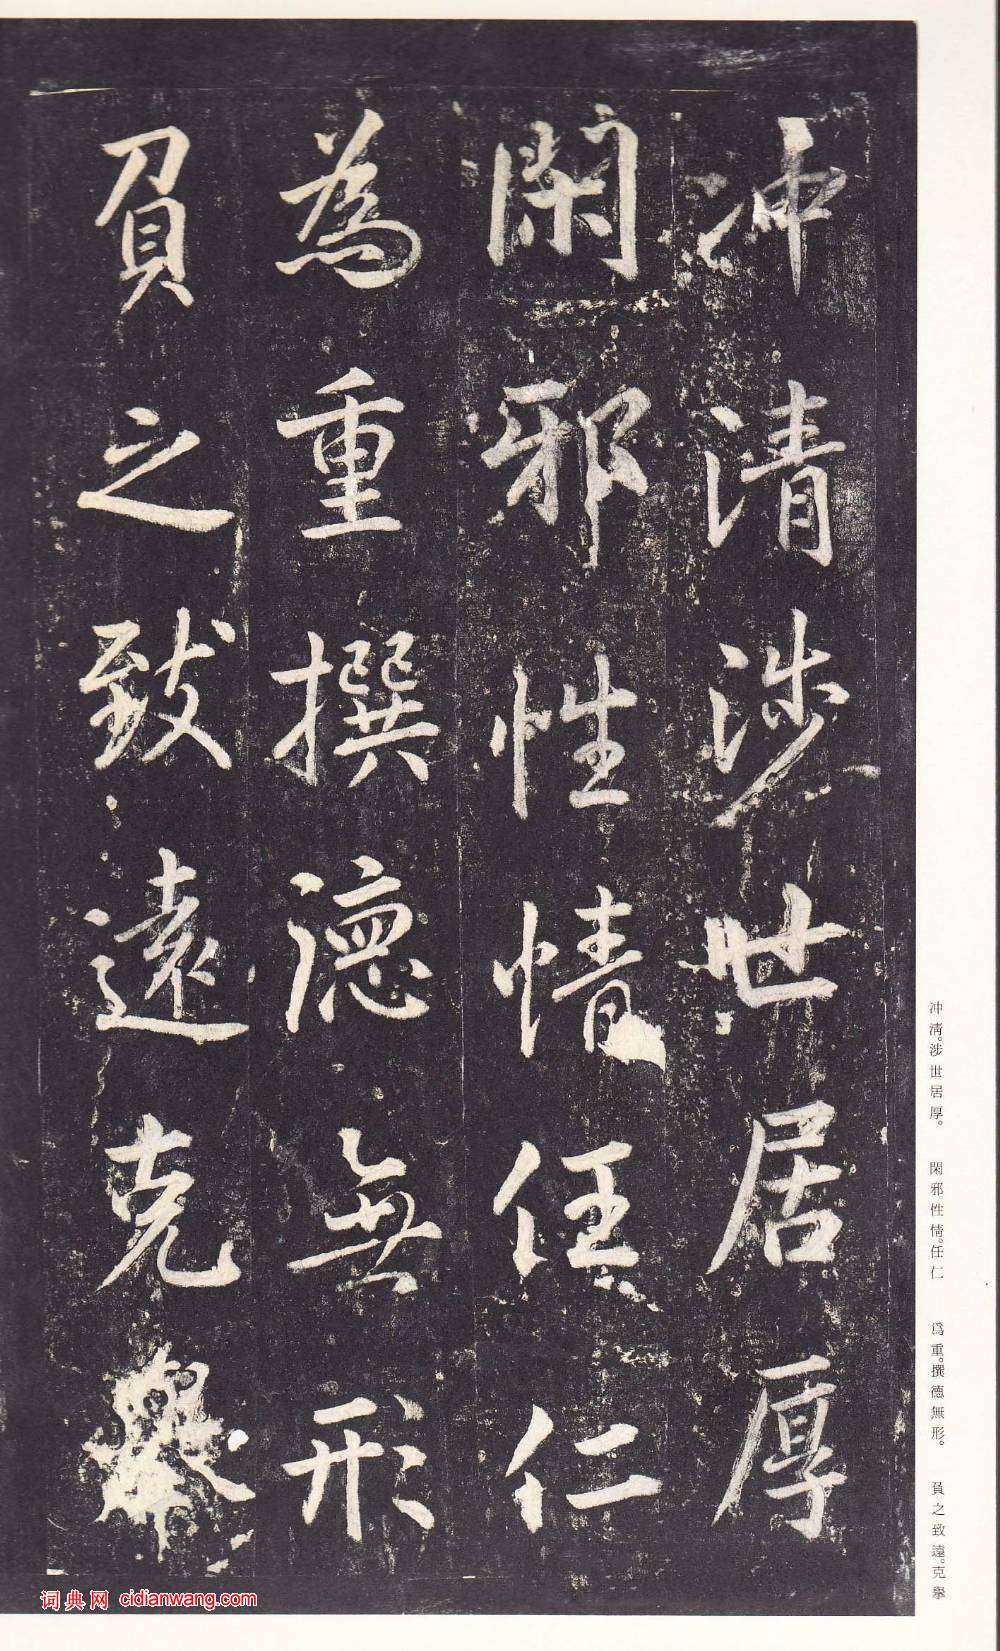 冲清涉世居厚
閑邪性情任仁
為重撰德無形
負之致遠克舉
冲淸。涉世居厚。 閑邪性情。任仁 爲重。撰德無形。 負之致遠。克擧
词典网 cidianwang.com